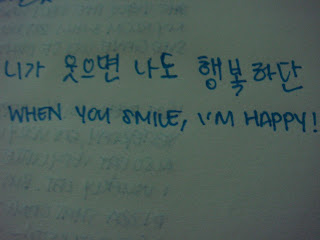 니가 웃으면 나도 행복하단
WHEN YOU SMILE, I'M HAPPY!